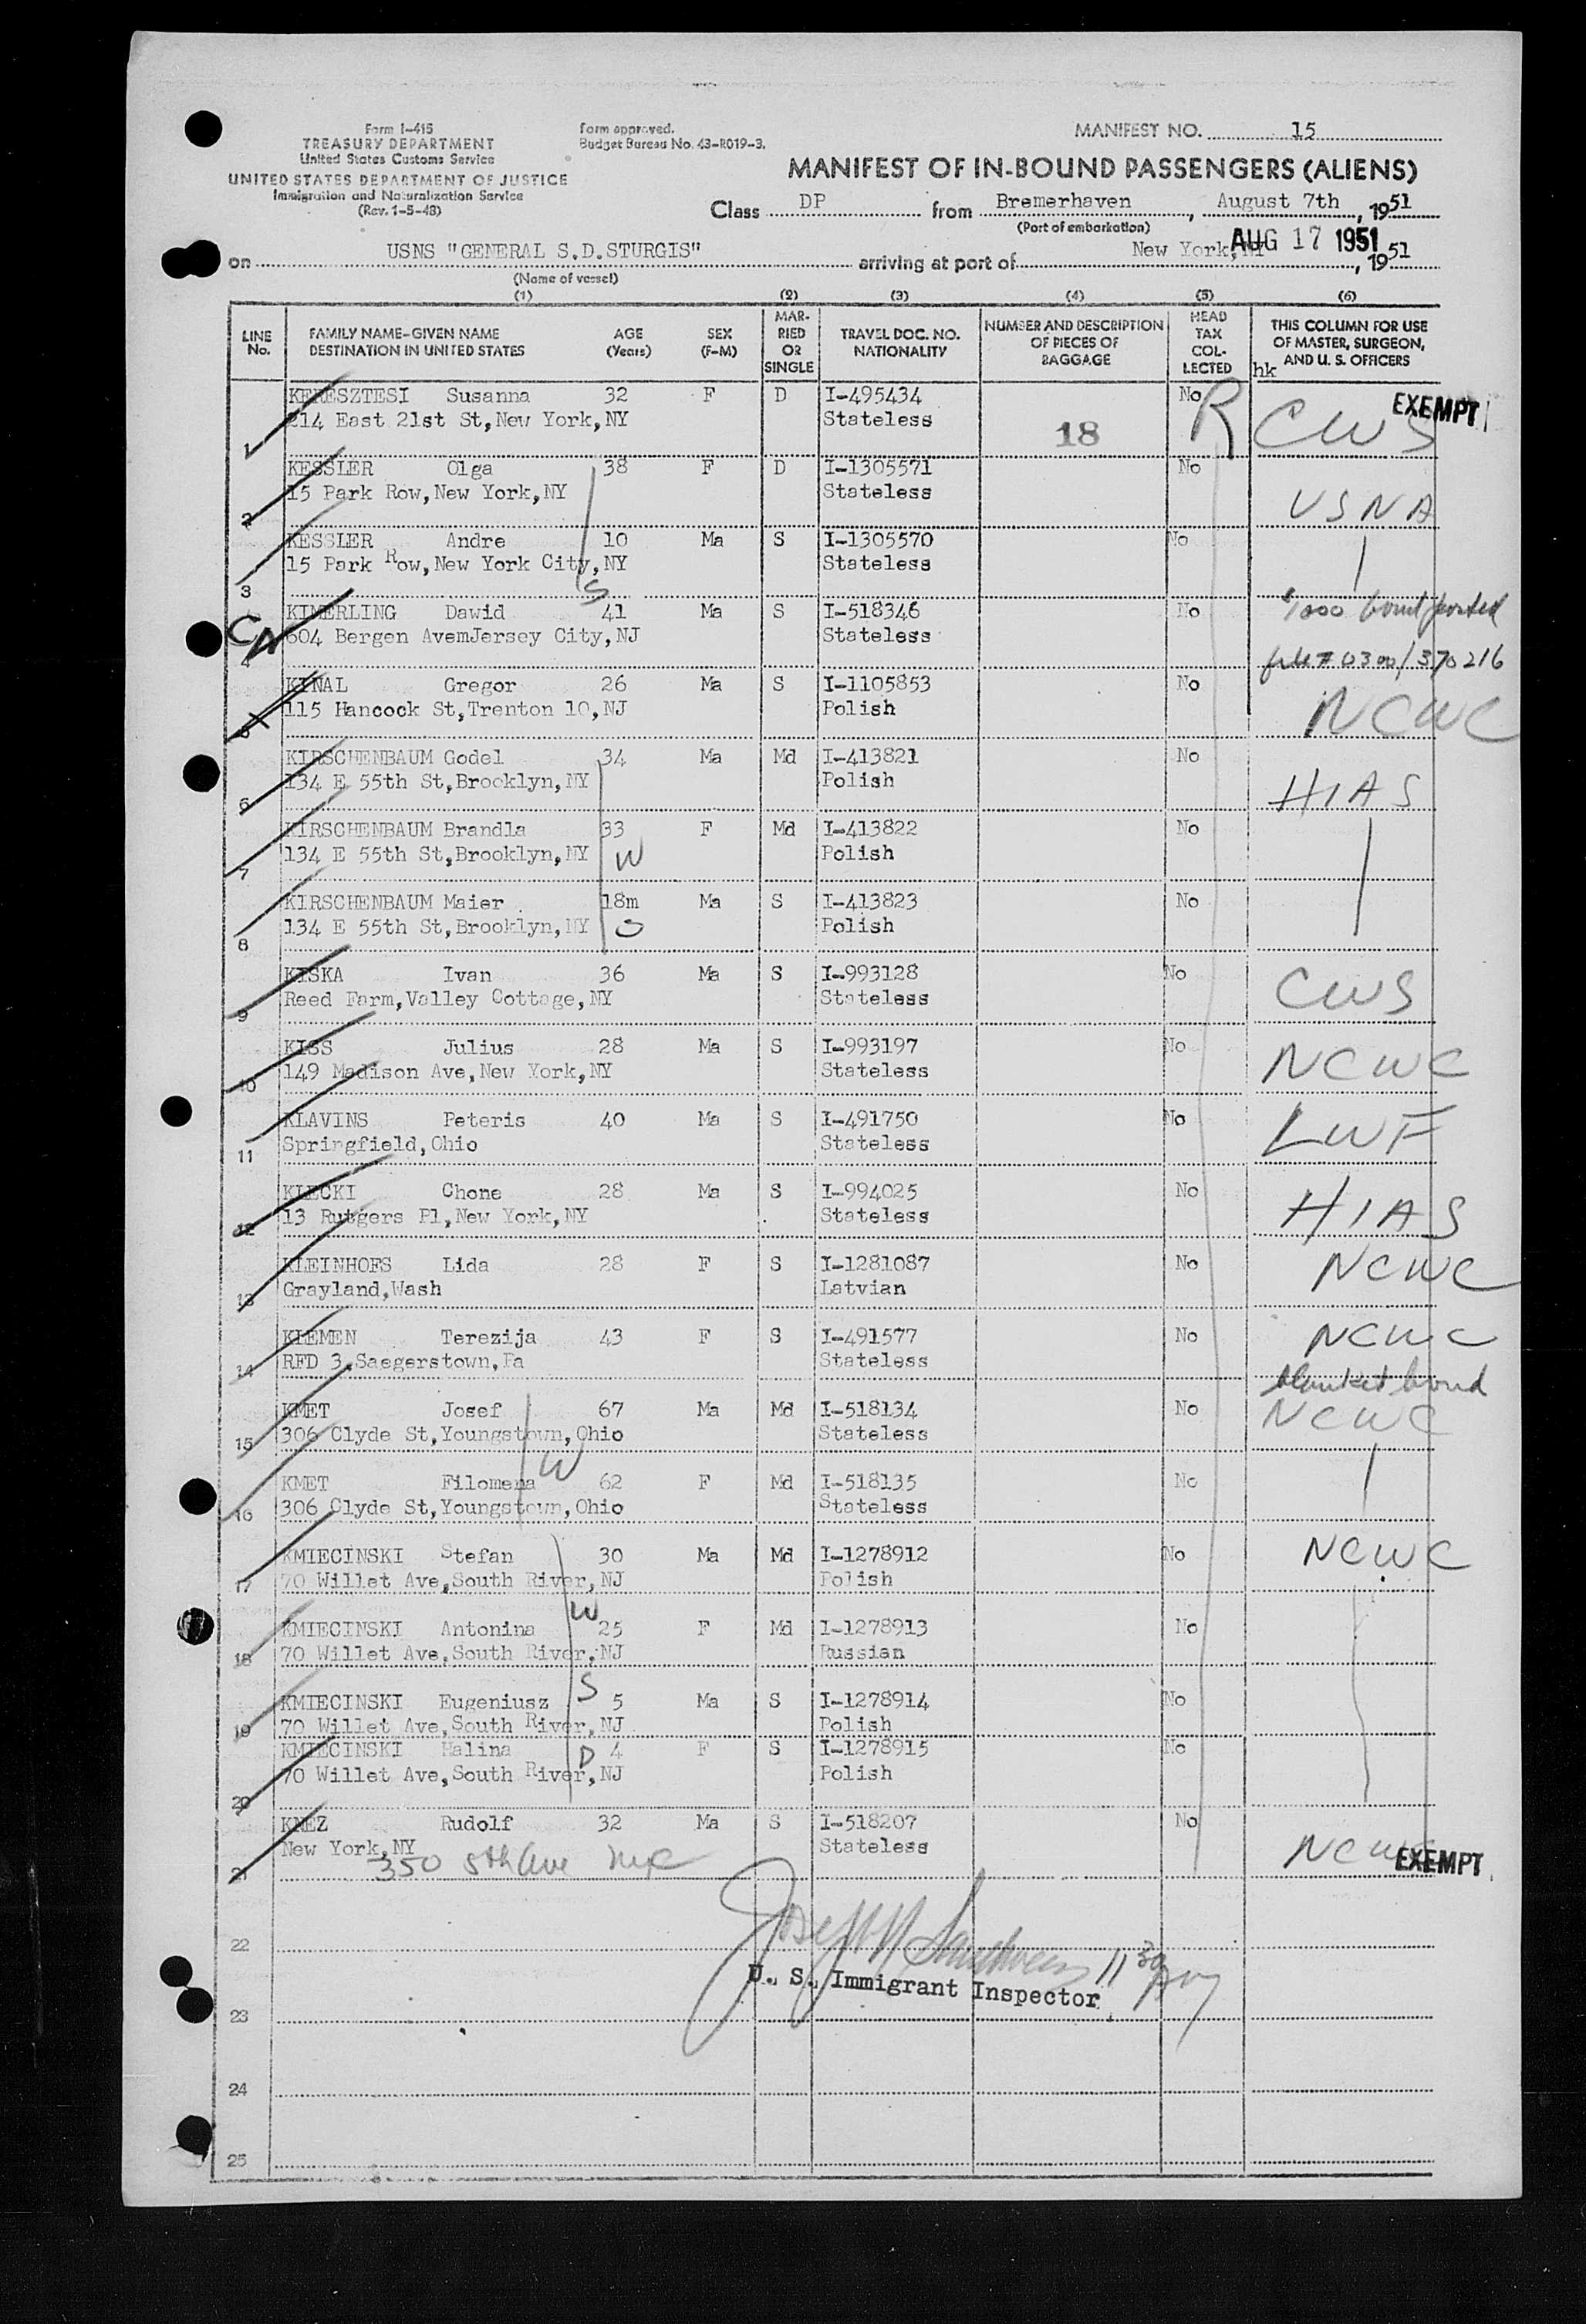 Form I-415
TREASURY DEPARTMENT
United States Customs Service
UNITED STATES DEPARTMENT OF JUSTICE
Immigration and Naturalization Service
(Rev. 1-5-48)
Form approved.
Budget Bureau No. 43-R019-3.
MANIFEST NO. 15
MANIFEST OF IN-BOUND PASSENGERS (ALIENS)
Class DP from Bremerhaven, August 7th, 1951
(Port of embarkation)
on USNS "GENERAL S.D.STURGIS" arriving at port of New York,NY AUG 17 1951, 1951
(Name of vessel)
(1) (2) (3) (4) (5) (6)
LINE No. FAMILY NAME-GIVEN NAME DESTINATION IN UNITED STATES AGE (Years) SEX (F-M) MARRIED OR SINGLE TRAVEL DOC. NO. NATIONALITY NUMBER AND DESCRIPTION OF PIECES OF BAGGAGE HEAD TAX COLLECTED THIS COLUMN FOR USE OF MASTER, SURGEON, AND U. S. OFFICERS
hk
KERESZTESI Susanna 32 F D I-495434 No R CWS EXEMPT
1 214 East 21st St,New York,NY Stateless 18
KESSLER Olga 38 F D I-1305571 No
2 15 Park Row,New York,NY Stateless USNA
KESSLER Andre 10 Ma S I-1305570 No
3 15 Park Row,New York City,NY Stateless
S
KIMERLING Dawid 41 Ma S I-518346 No $1000 bond posted
4 604 Bergen AvemJersey City,NJ Stateless
file # 0300/370216
KINAL Gregor 26 Ma S I-1105853 No
5 X 115 Hancock St,Trenton 10,NJ Polish NCWC
KIRSCHENBAUM Godel 34 Ma Md I-413821 No
6 134 E 55th St,Brooklyn,NY Polish HIAS
KIRSCHENBAUM Brandla 33 F Md I-413822 No
7 134 E 55th St,Brooklyn,NY W Polish
KIRSCHENBAUM Maier 18m Ma S I-413823 No
8 134 E 55th St,Brooklyn,NY S Polish
KISKA Ivan 36 Ma S I-993128 No
9 Reed Farm,Valley Cottage,NY Stateless CWS
KISS Julius 28 Ma S I-993197 No
10 149 Madison Ave,New York,NY Stateless NCWC
KLAVINS Peteris 40 Ma S I-491750 No
11 Springfield,Ohio Stateless LWF
KLECKI Chone 28 Ma S I-994025 No
12 13 Rutgers Pl,New York,NY Stateless HIAS
KLEINHOFS Lida 28 F S I-1281087 No NCWC
13 Grayland,Wash Latvian
KLEMEN Terezija 43 F S I-491577 No NCWC
14 RFD 3,Saegerstown,Pa Stateless
blanket bond
KMET Josef 67 Ma Md I-518134 No NCWC
15 306 Clyde St,Youngstown,Ohio Stateless
W
KMET Filomena 62 F Md I-518135 No
16 306 Clyde St,Youngstown,Ohio Stateless
KMIECINSKI Stefan 30 Ma Md I-1278912 No NCWC
17 70 Willet Ave,South River,NJ Polish
W
KMIECINSKI Antonina 25 F Md I-1278913 No
18 70 Willet Ave,South River,NJ Russian
S
KMIECINSKI Eugeniusz 5 Ma S I-1278914 No
19 70 Willet Ave,South River,NJ Polish
KMIECINSKI Halina D 4 F S I-1278915 No
20 70 Willet Ave,South River,NJ Polish
KNEZ Rudolf 32 Ma S I-518207 No
21 New York,NY Stateless NCWC EXEMPT
350 5th Ave NYC
22
U. S. Immigrant Inspector
23
24
25